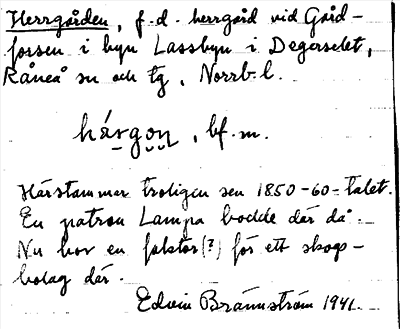 Herrgården, f.d. herrgård vid Gård-
forsen i byn Lassbyn i Degerselet,
Råneå sn och tg, Norrb. l.
hárgo̤n̤, bf. m.
Härstammar troligen sen 1850-60-talet.
En patron Lampa bodde där då.
Nu bor en faktor(?) för ett skogs-
bolag där.
Edvin Brännström 1941.